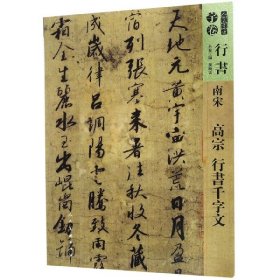 行書
南宋
高宗 行書千字文
天地元黄宇宙洪荒日月盈
宿列張寒来暑往秋收冬藏
成歲律呂調陽雲騰致雨露
霜金生麗水玉出崐崗劍號